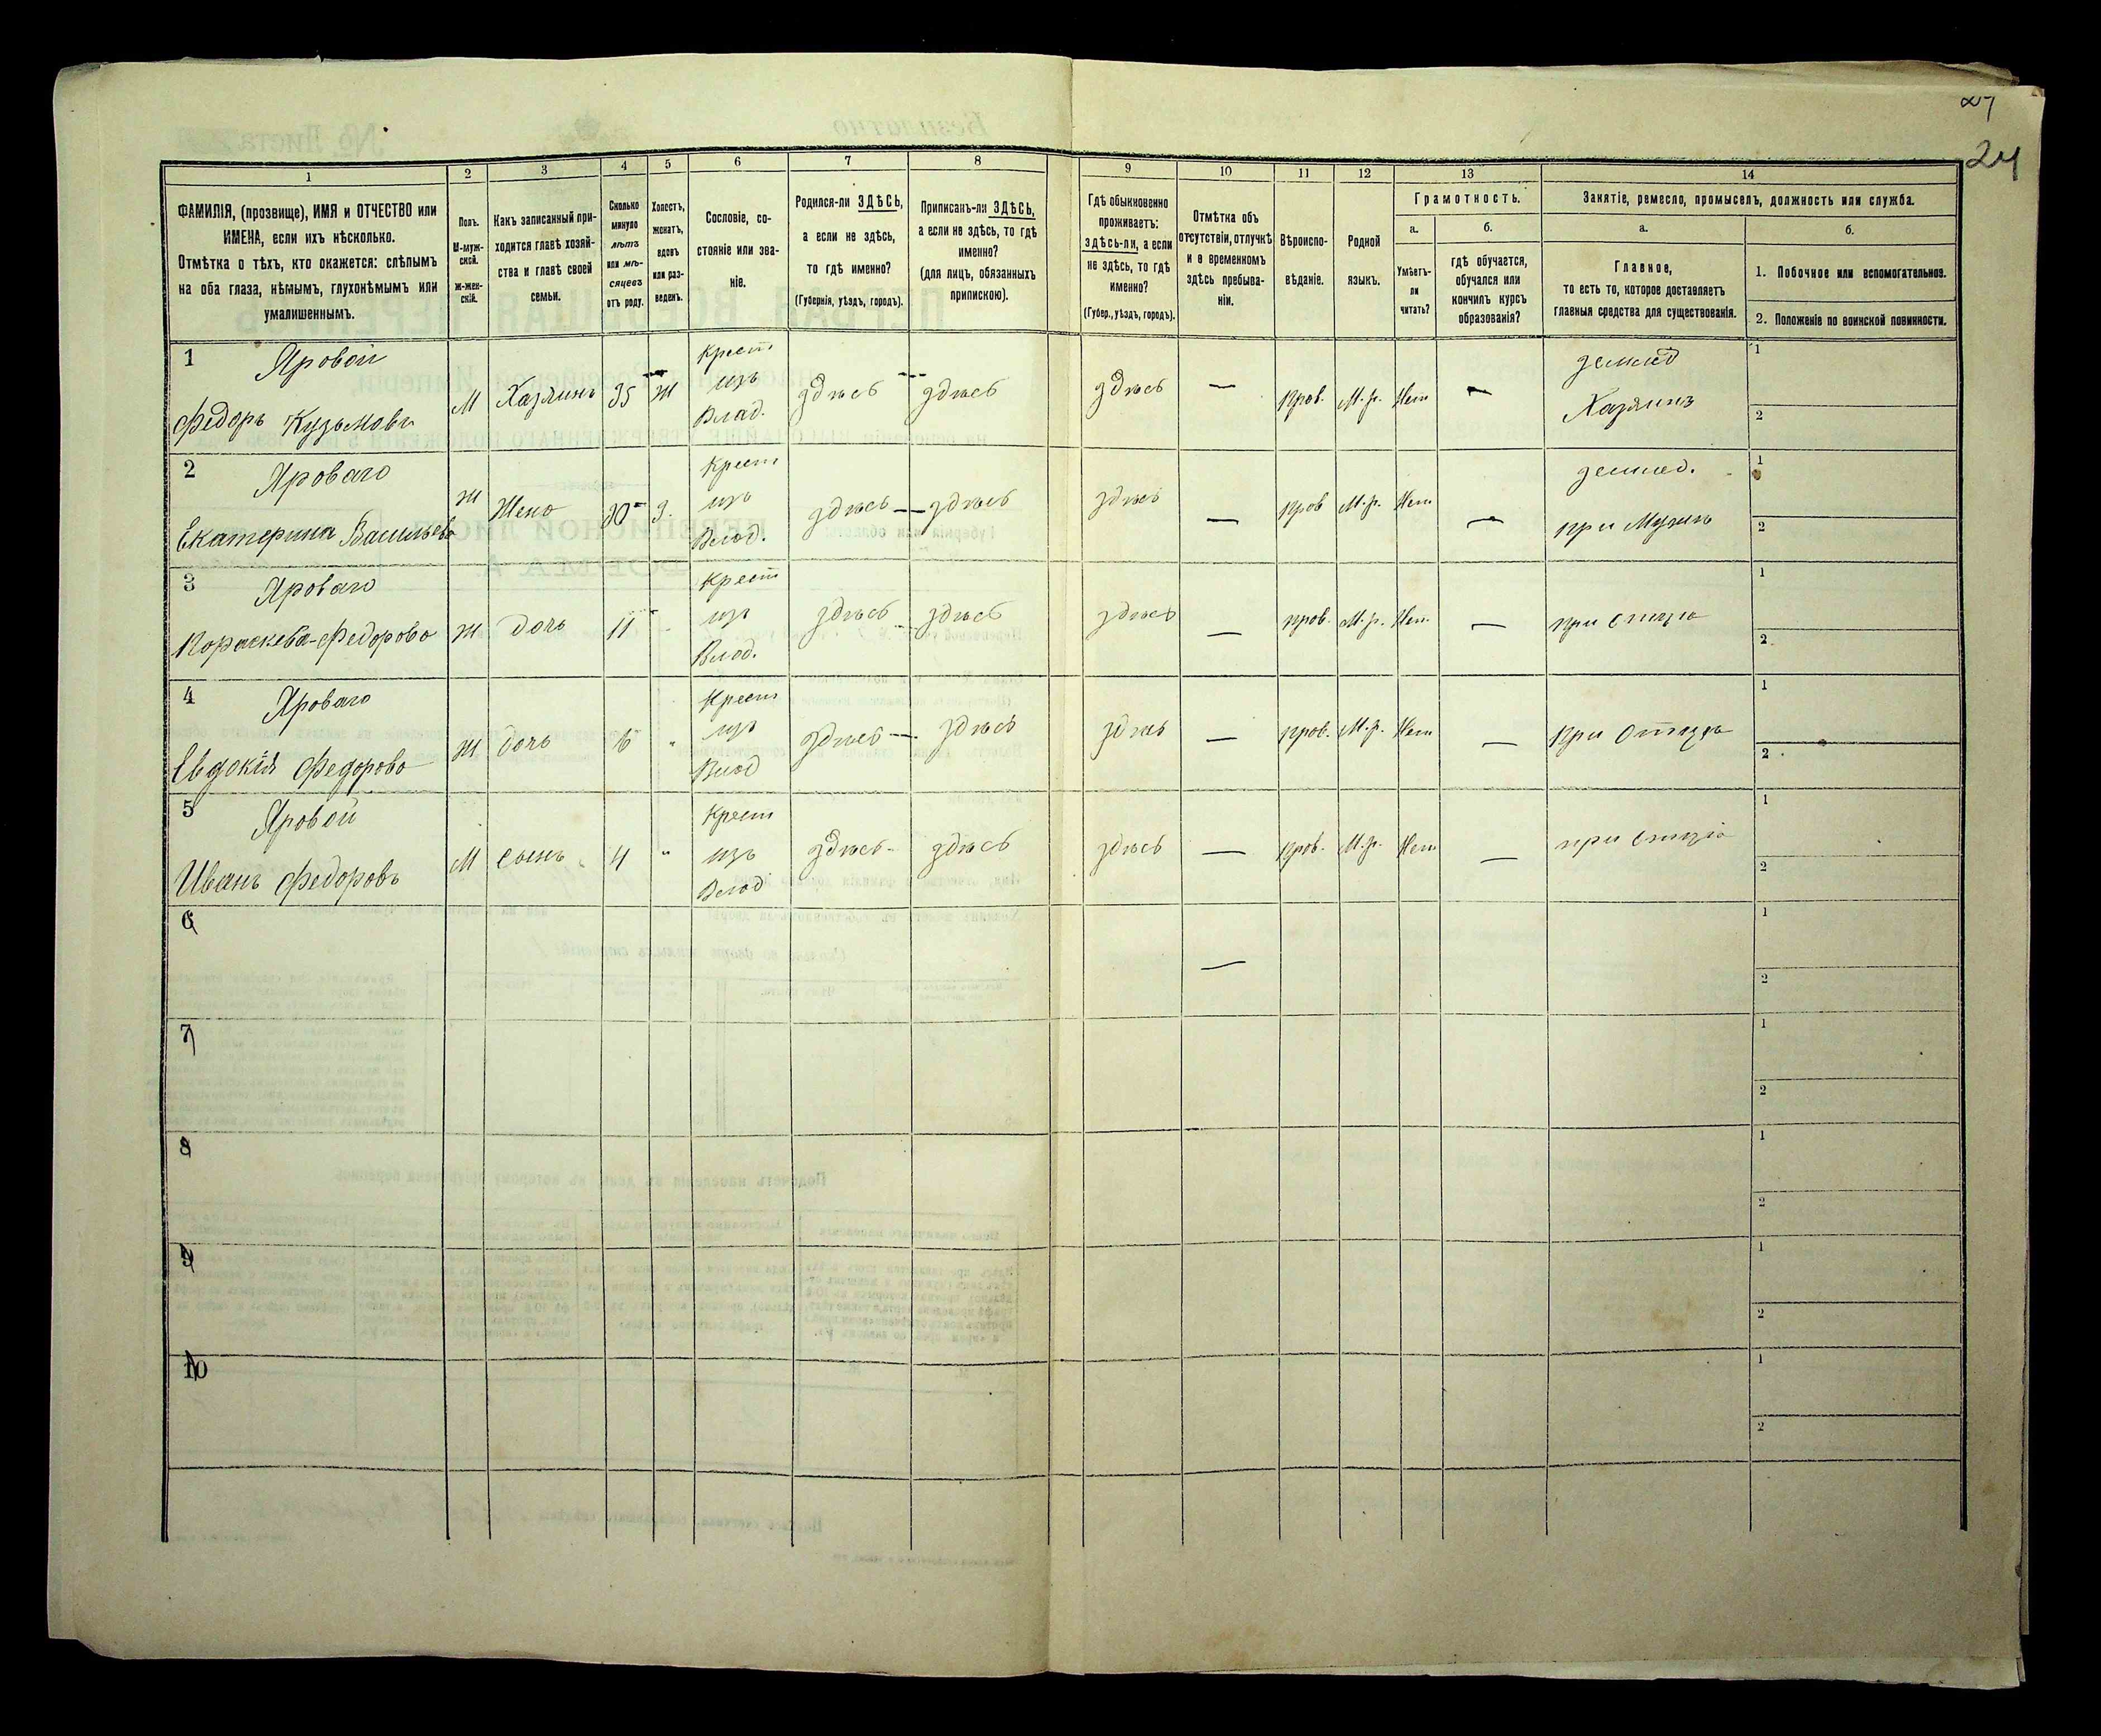 24
1 2 3 4 5 6 7 8 9 10 11 12 13 14
ФАМИЛІЯ, (прозвище), ИМЯ и ОТЧЕСТВО или
ИМЕНА, если ихъ нѣсколько.
Отмѣтка о тѣхъ, кто окажется: слѣпымъ
на оба глаза, нѣмымъ, глухонѣмымъ или
умалишеннымъ.
Полъ.
М-муж-
ской.
Ж-жен-
скій.
Какъ записанный при-
ходится главѣ хозяй-
ства и главѣ своей
семьи.
Сколько
минуло
лѣтъ
или мѣ-
сяцевъ
отъ роду.
Холостъ,
женатъ,
вдовъ
или раз-
веденъ.
Сословіе, со-
стояніе или зва-
ніе.
Родился-ли ЗДѢСЬ,
а если не здѣсь,
то гдѣ именно?
(Губернія, уѣздъ, городъ).
Приписанъ-ли ЗДѢСЬ,
а если не здѣсь, то гдѣ
именно?
(для лицъ, обязанныхъ
припискою).
Гдѣ обыкновенно
проживаетъ:
здѣсь-ли, а если
не здѣсь, то гдѣ
именно?
(Губер., уѣздъ, городъ).
Отмѣтка объ
отсутствіи, отлучкѣ
и о временномъ
здѣсь пребыва-
ніи.
Вѣроиспо-
вѣданіе.
Родной
языкъ.
Грамотность.
а.
Умѣетъ-
ли
читать?
б.
гдѣ обучается,
обучался или
кончилъ курсъ
образованія?
Занятіе, ремесло, промыселъ, должность или служба.
а.
Главное,
то есть то, которое доставляетъ
главныя средства для существованія.
б.
1. Побочное или вспомогательное.
2. Положеніе по воинской повинности.
1 Яровой
Федоръ Кузьмовъ
М Хазяинъ 35 Ж
Крест
изъ
Влад.
здѣсь здѣсь здѣсь — Прав. М.р. Нет —
землед
Хазяинъ
1
2
2 Яроваго
Екатерина Васильева
Ж Жена 30 З.
Крест
изъ
Влад.
здѣсь здѣсь здѣсь — Прав М.р. Нет —
землед.
при Мужи
1
2
3 Яроваго
Пораскева Федорова
Ж дочь 11
Крест
изъ
Влад.
здѣсь здѣсь здѣсь — Прав. М.р. Нет —
при отцѣ
1
2
4 Яроваго
Евдокія Федорова
Ж дочь
Крест
изъ
Влад
здѣсь здѣсь здѣсь — Прав. М.р. Нет —
при Отцѣ
1
2
5 Яровой
Иванъ Федоровъ
М сынъ 4 "
Крест
изъ
Влад
здѣсь здѣсь здѣсь — Прав. М.р. Нет —
при Отцѣ
1
2
6 — 1
2
7 1
2
8 1
2
9 1
2
10 1
2